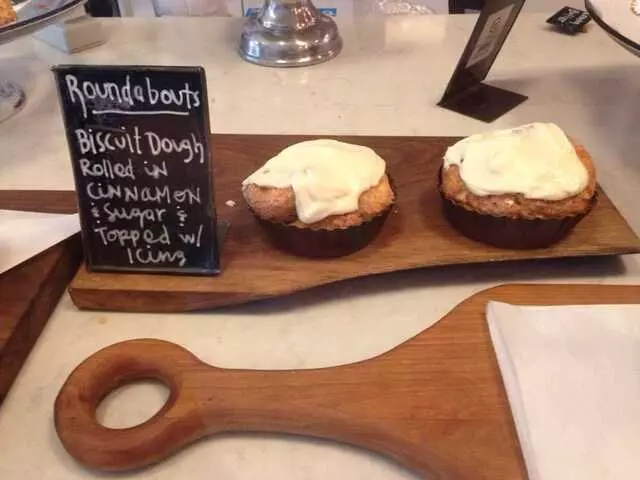 Roundabouts
Biscuit Dough
Rolled in
CINNAMON
& Sugar &
Topped w/
Icing